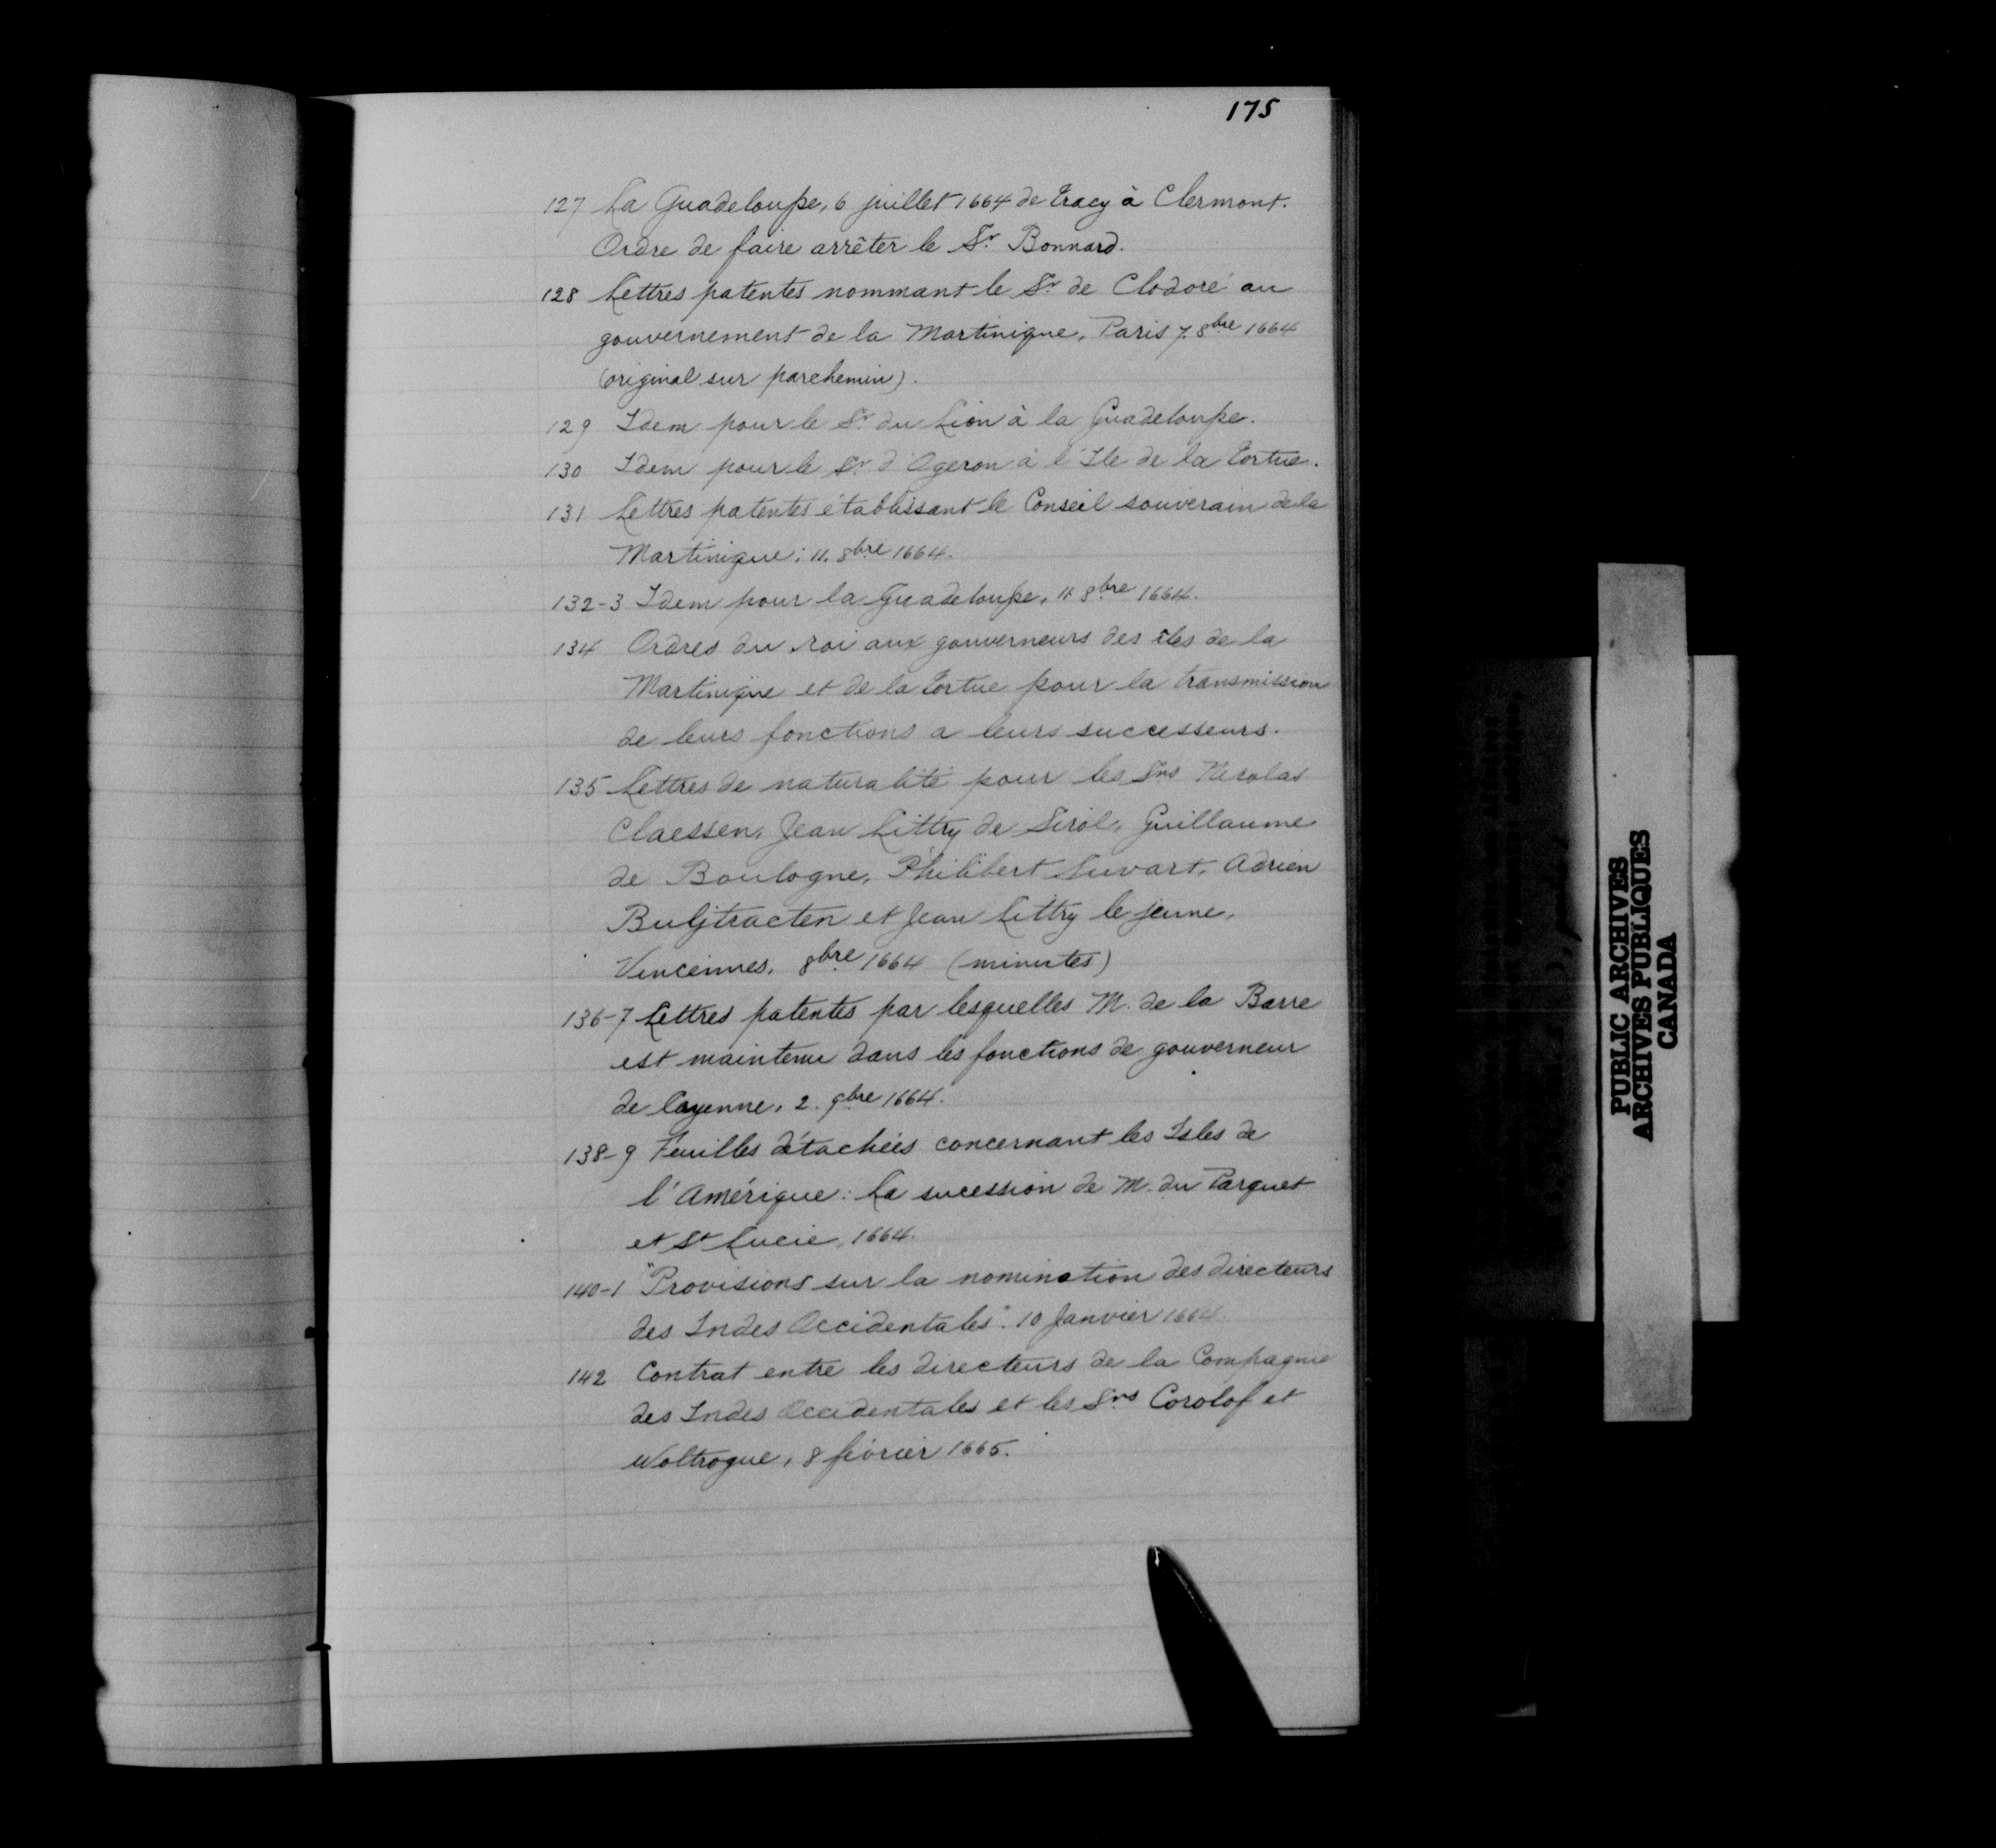 175
127 La Guadeloupe, 6 juillet 1664 de Tracy à Clermont.
Ordre de faire arrêter le Sr. Bonnard.
128 Lettres patentes nommant le Sr. de Clodoré au
gouvernement de la Martinique, Paris 7. 8bre 1664
(original sur parchemin).
129 Idem pour le Sr. du Lion à la Guadeloupe.
130 Idem pour le Sr. d'Ogeron à l'Ile de la Tortue.
131 Lettres patentes établissant le Conseil souverain de la
Martinique; 11. 8bre 1664.
132-3 Idem pour la Guadeloupe, 11 8bre 1664.
134 Ordres du roi aux gouverneurs des îles de la
Martinique et de la Tortue pour la transmission
de leurs fonctions a leurs successeurs.
135 Lettres de naturalité pour les Srs Nicolas
Claessen, Jean Littry de Sirol, Guillaume
de Boulogne, Philibert Suvart, Adrien
et Jean Littry le jeune,
Vincennes, 8bre 1664 (minutes)
136-7 Lettres patentes par lesquelles M. de la Barre
est maintenu dans les fonctions de gouverneur
de Cayenne, 2. 9bre 1664.
138-9 Feuilles détachées concernant les Isles de
l'Amérique: La sucession de M. du Parquet
et St Lucie, 1664.
140-1 "Provisions sur la nomination des directeurs
des Indes Occidentales". 10 Janvier 1664.
142 Contrat entre les directeurs de la Compagnie
des Indes Occidentales et les Srs Corolof et
Woltrogue, 8 février 1665.
PUBLIC ARCHIVES
ARCHIVES PUBLIQUES
CANADA